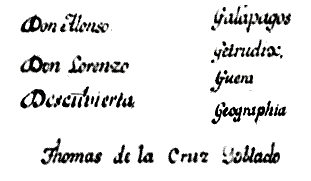 Don Alonso
Don Lorenzo
Descubierta
Galápagos
Getrudix,
Guera
Geographia
Thomas de la Cruz Doblado